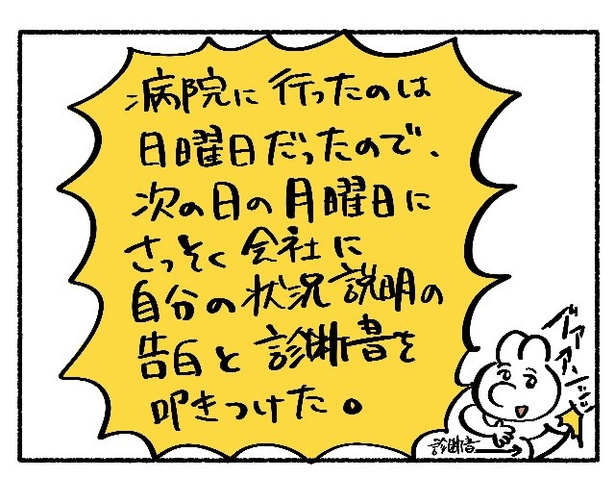 病院に行ったのは
日曜日だったので、
次の日の月曜日に
さっそく会社に
自分の状況説明の
告白と診断書を
叩きつけた。
診断書